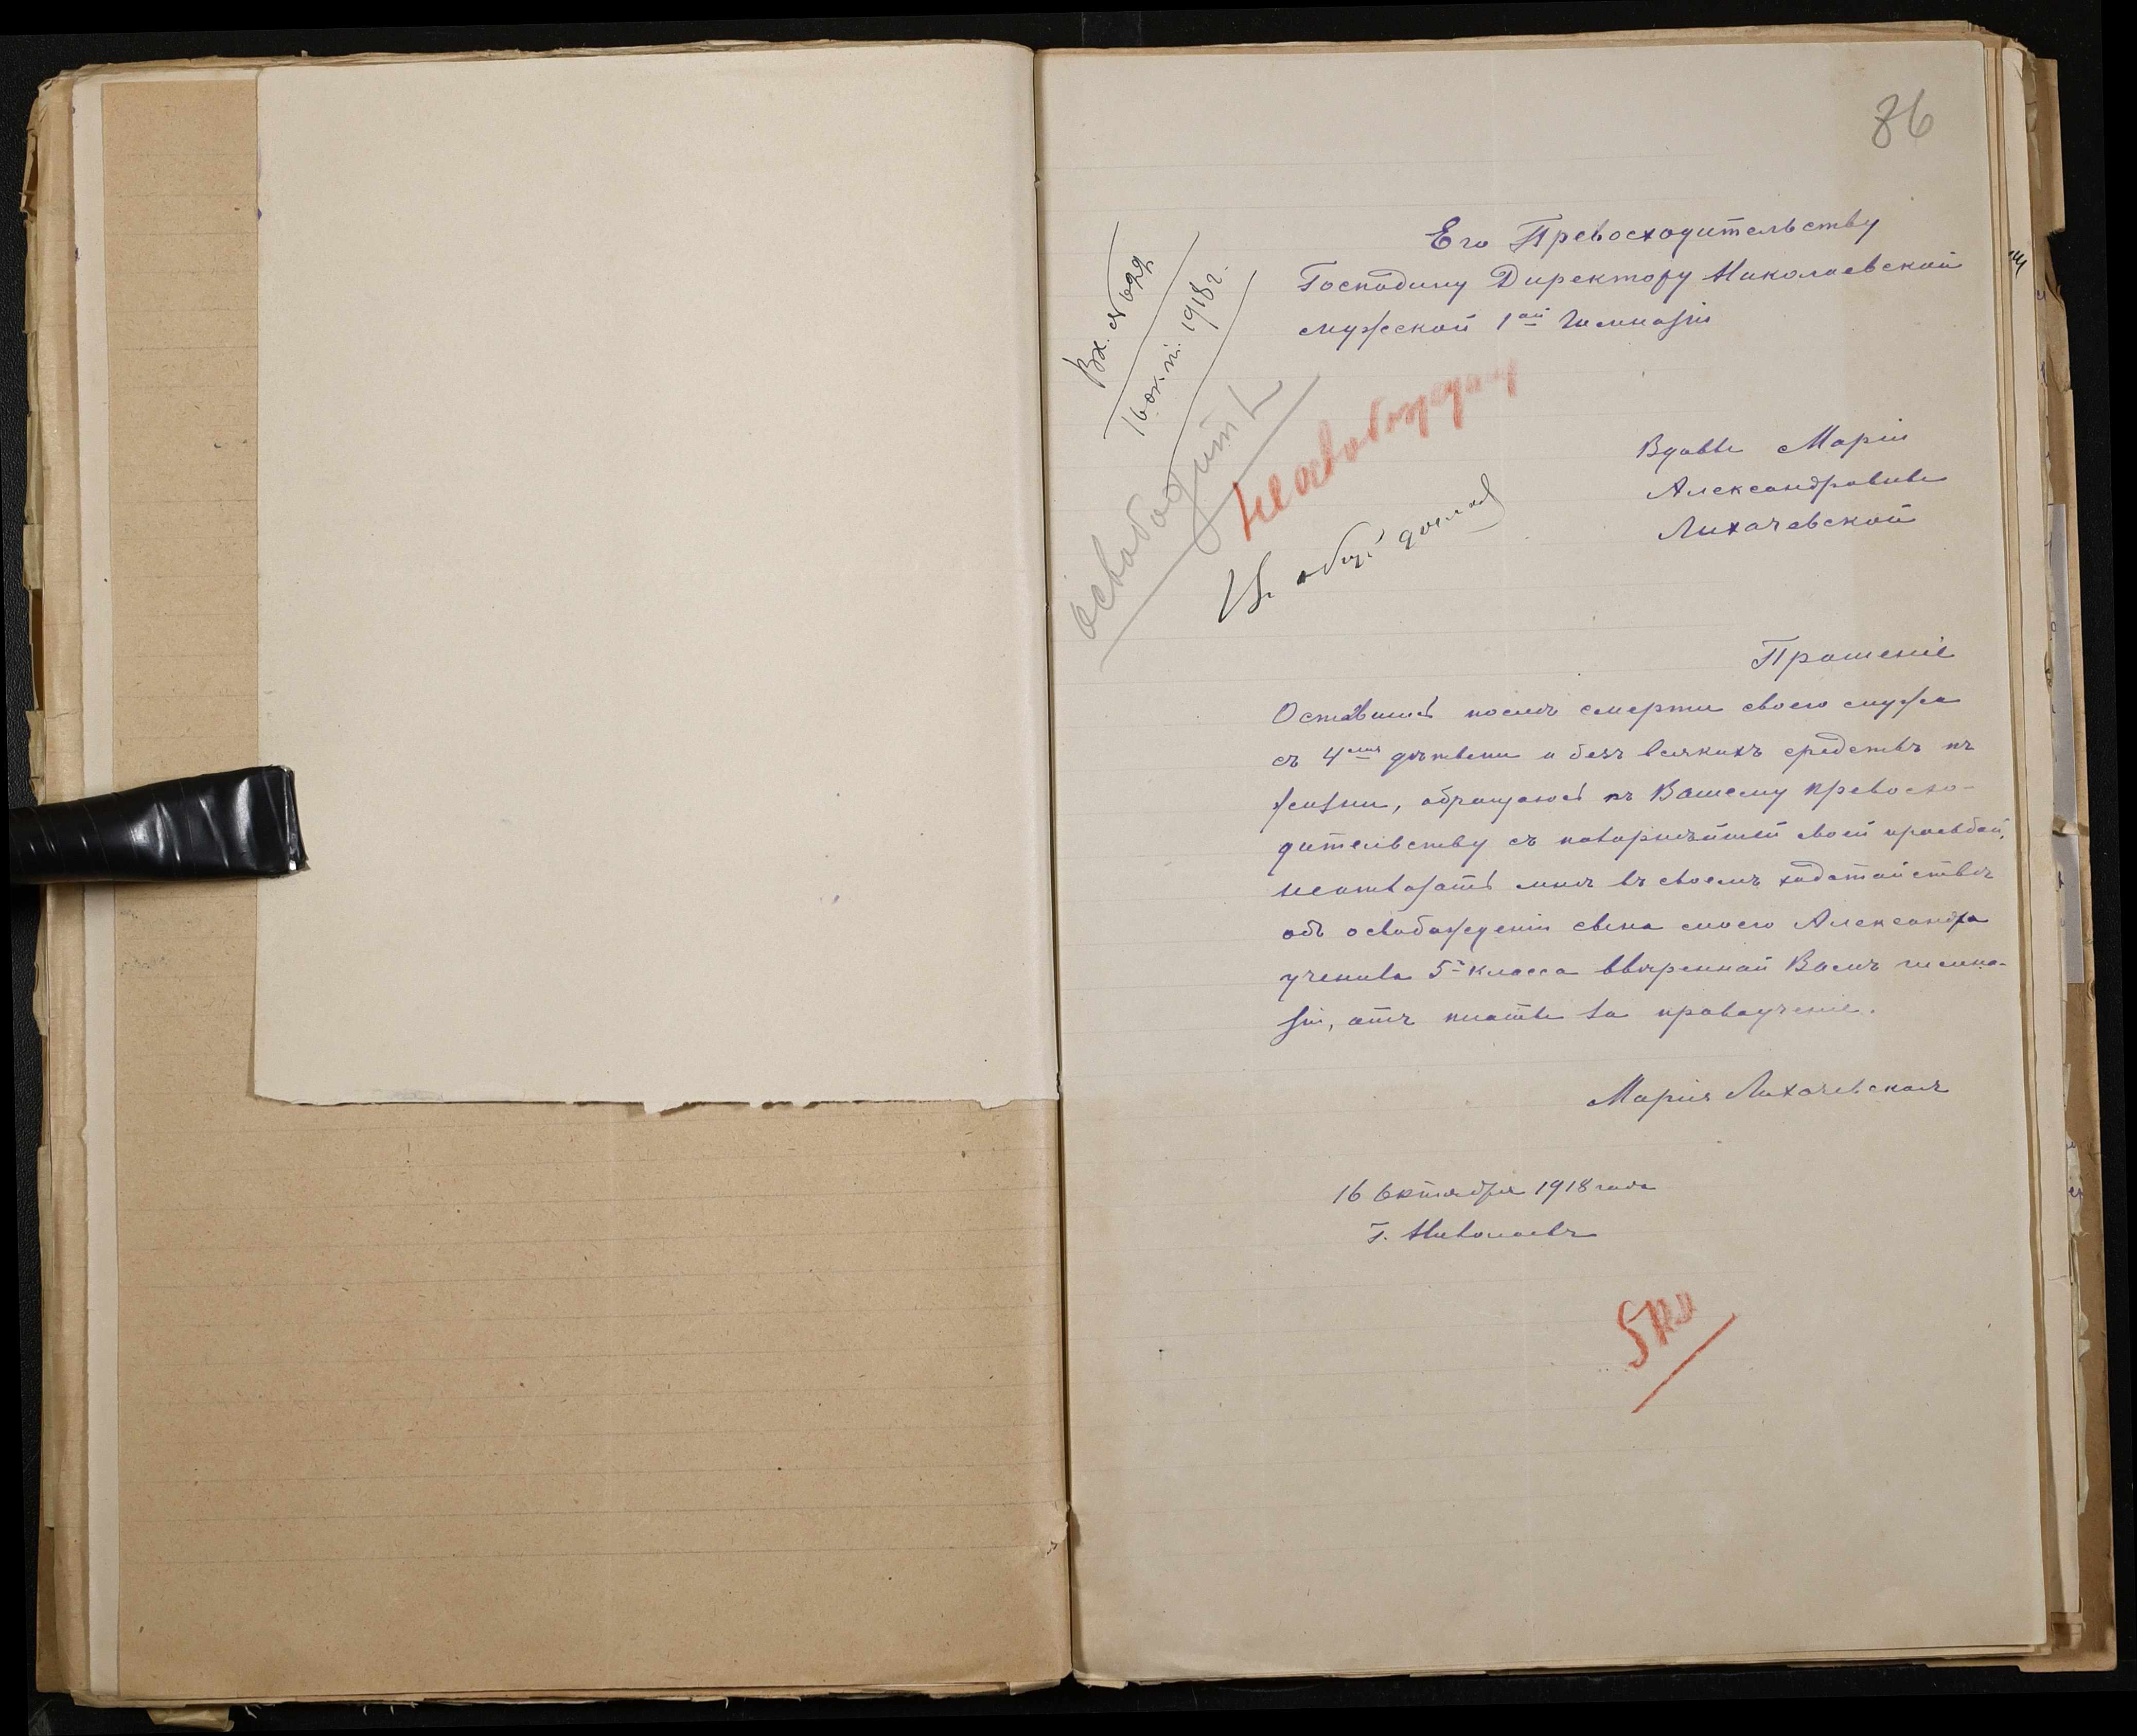 86
Его Превосходительству
Господину Директору Николаевской
мужской 1ой Гимназіи
Вх. № 622
16 окт. 1918 г.
освободить
Не освобожден
Вдовы Маріи
Александровны
Лихачевской
Прошеніе
Оставшись послѣ смерти своего мужа
съ 4мя дѣтьми и безъ всякихъ средствъ къ
жизни, обращаюсь къ Вашему превосхо-
дительству съ покорнѣйшей своей просьбой,
неотказать мнѣ въ своемъ ходатайствѣ
объ освобожденіи сына моего Александра
ученика 5- класса ввѣренной Вамъ гимна-
зіи, отъ платы за правоученіе.
Марія Лихачевская
16 Октября 1918 года
Г. Николаевъ